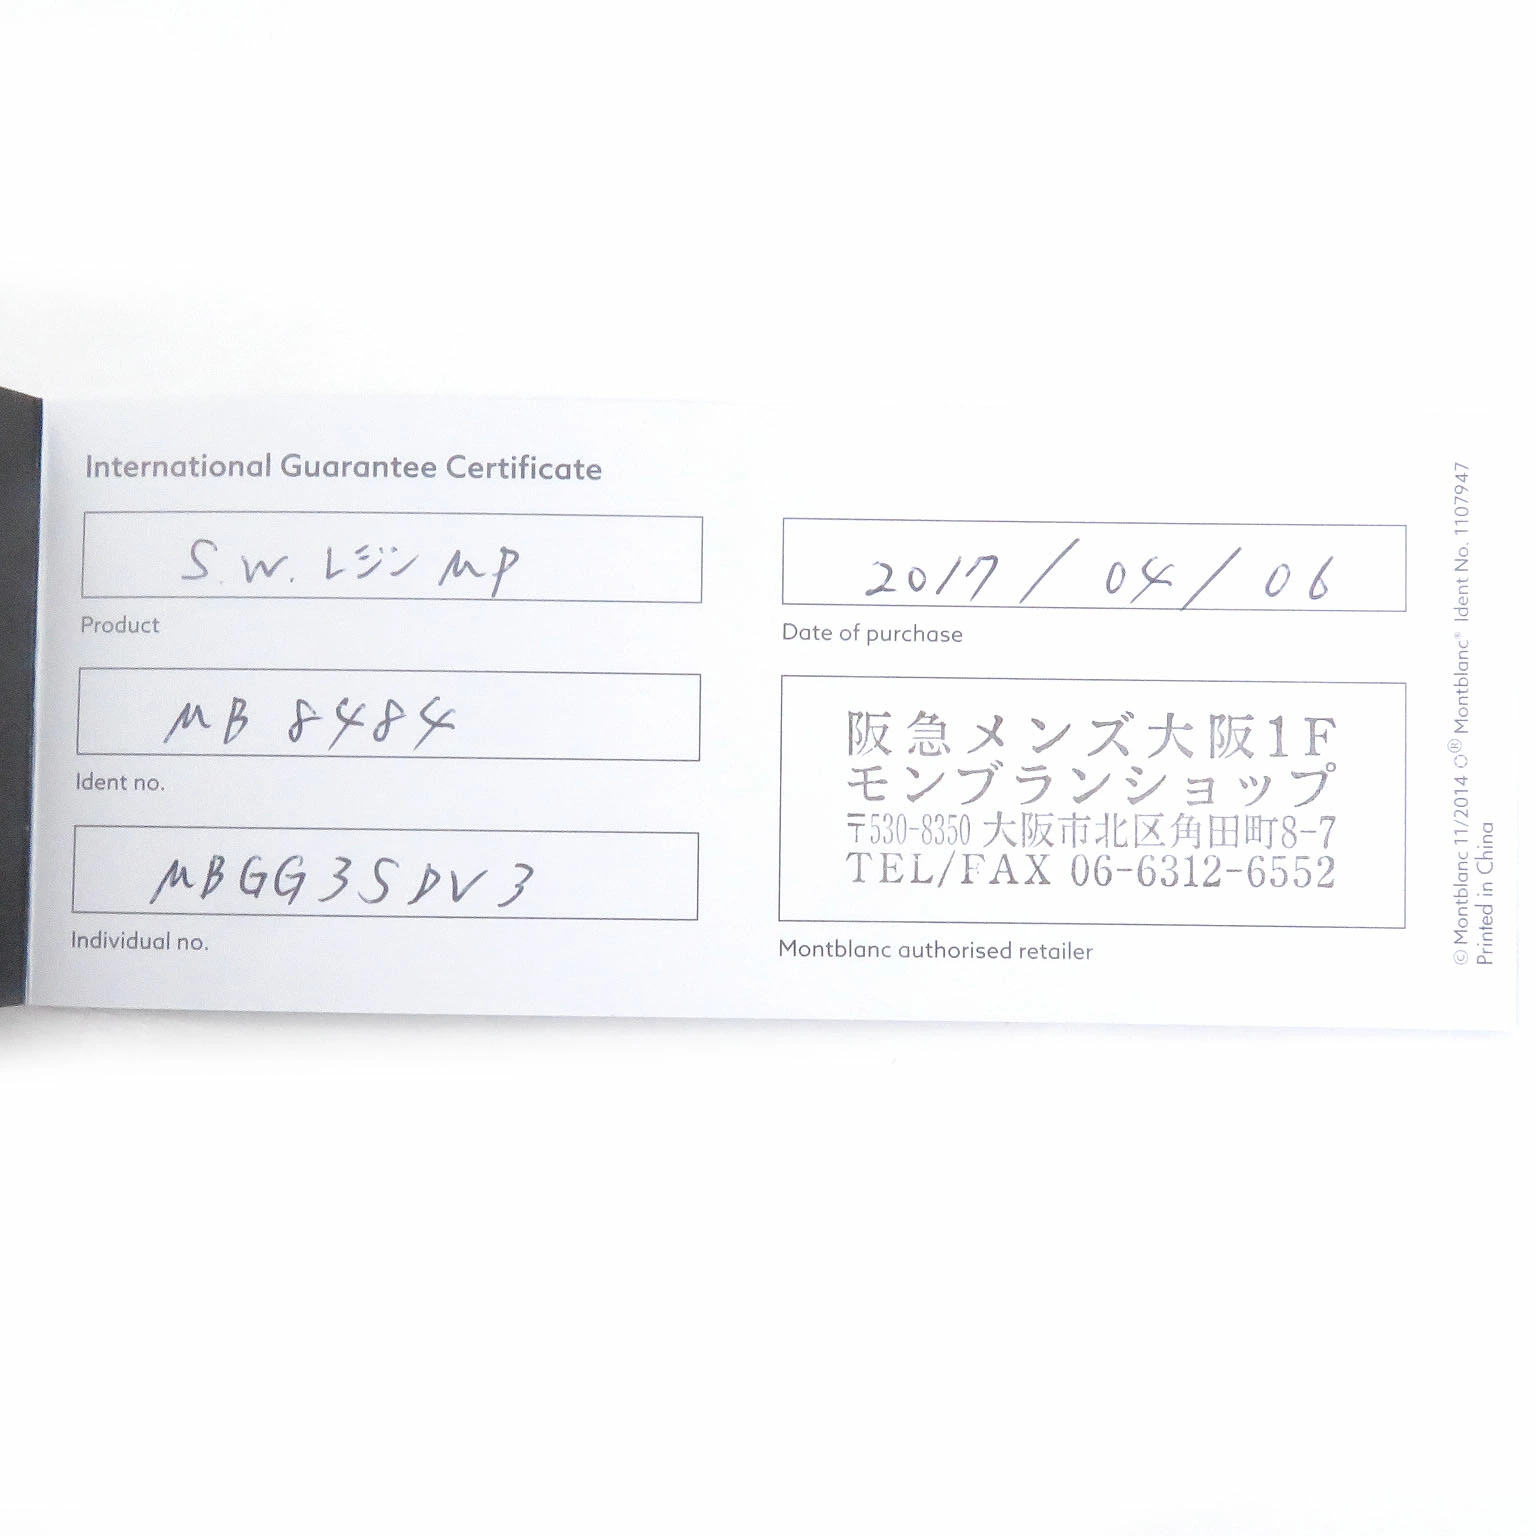 International Guarantee Certificate
S.W. レジン MP
Product
MB 8484
Ident no.
MBGG3SDV3
Individual no.
2017 / 04 / 06
Date of purchase
阪急メンズ大阪1F
モンブランショップ
〒530-8350 大阪市北区角田町8-7
TEL/FAX 06-6312-6552
Montblanc authorised retailer
© Montblanc 11/2014 ® Montblanc® Ident No. 1107947
Printed in China